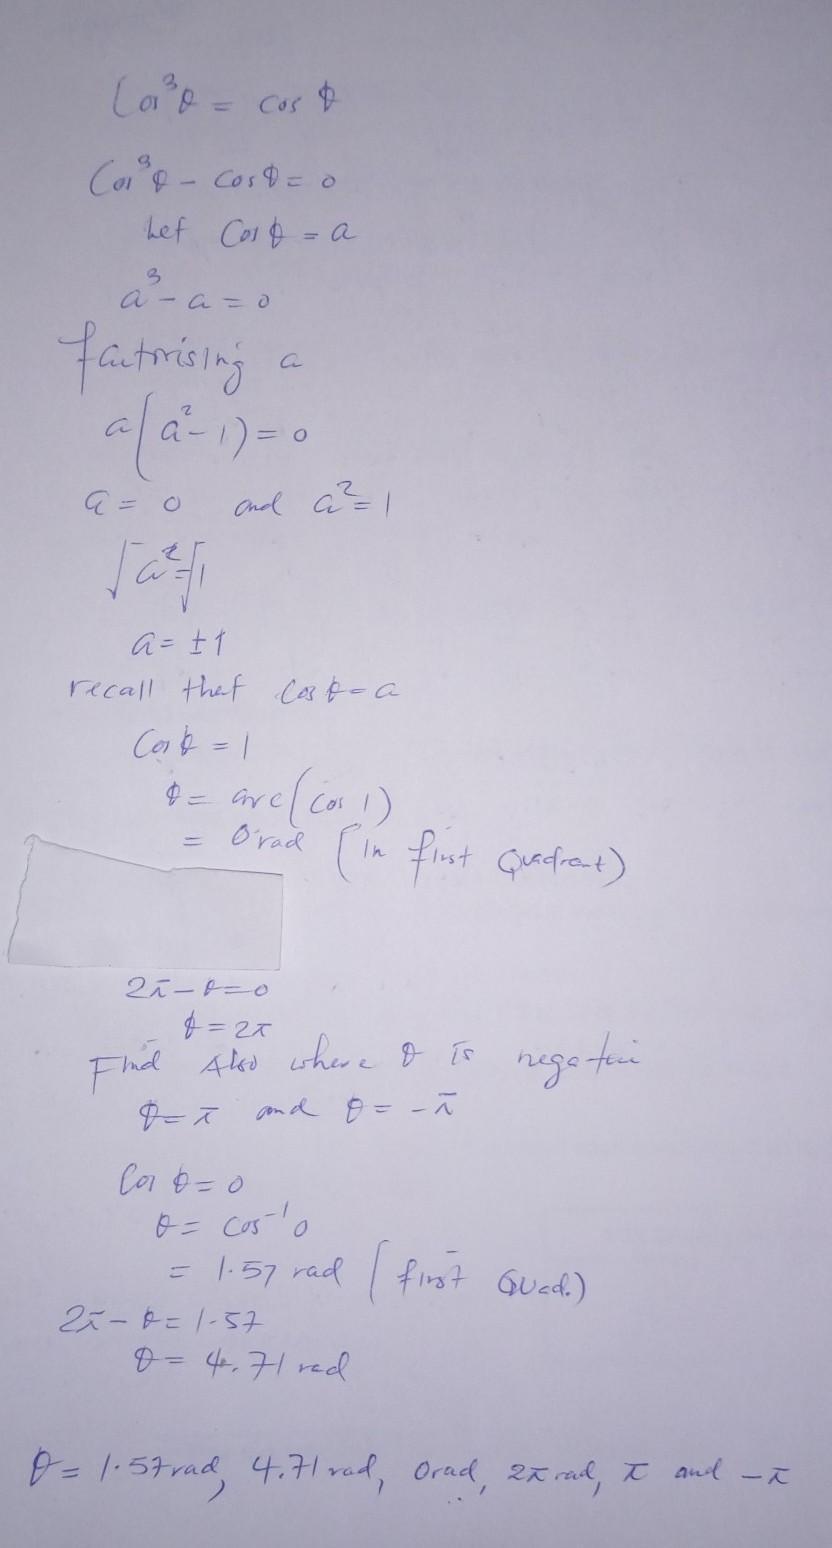 Cos³θ = cos θ
Cos³θ - cosθ = 0
Let Cosθ = a
a³ - a = 0
factorising a
a(a² - 1) = 0
a = 0 and a² = 1
√a² = √1
a = ±1
recall that Cosθ = a
Cosθ = 1
θ = arc(cos 1)
= 0 rad (in first Quadrant)
2π - θ = 0
θ = 2π
Find Also where θ is negative
θ = π and θ = -π
Cos θ = 0
θ = cos⁻¹0
= 1.57 rad (first Quad.)
2π - θ = 1.57
θ = 4.71 rad
θ = 1.57rad, 4.71 rad, 0rad, 2π rad, π and -π